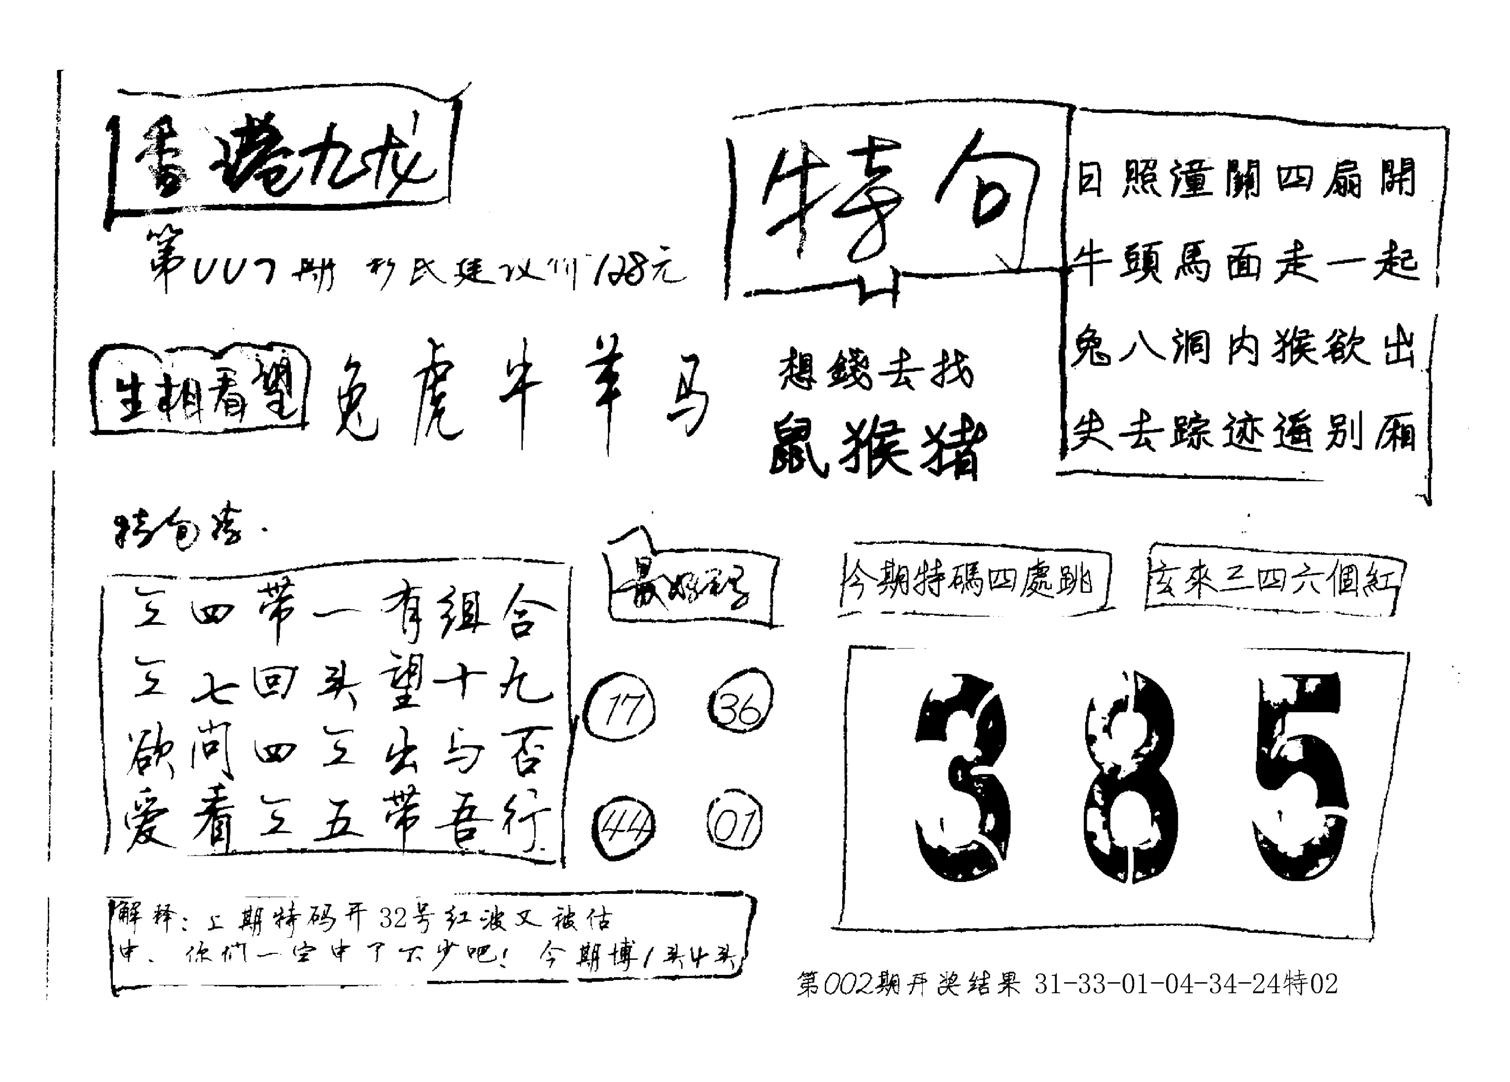 香港九龙
第007期 彩民建议价128元
特句
日照潼關四扇開
牛頭馬面走一起
兔八洞内猴欲出
失去踪迹遁别厢
生相看望
兔虎牛羊马
想錢去找
鼠猴猪
特句诗.
三四带一有组合
三七回头望十九
欲问四三出与否
爱看三五带吾行
最好码
17 36
44 01
今期特碼四處跳
玄來三四六個紅
385
解释:上期特码开32号红波又被估
中、你们一定中了不少吧!今期博1头4头
第002期开奖结果 31-33-01-04-34-24特02